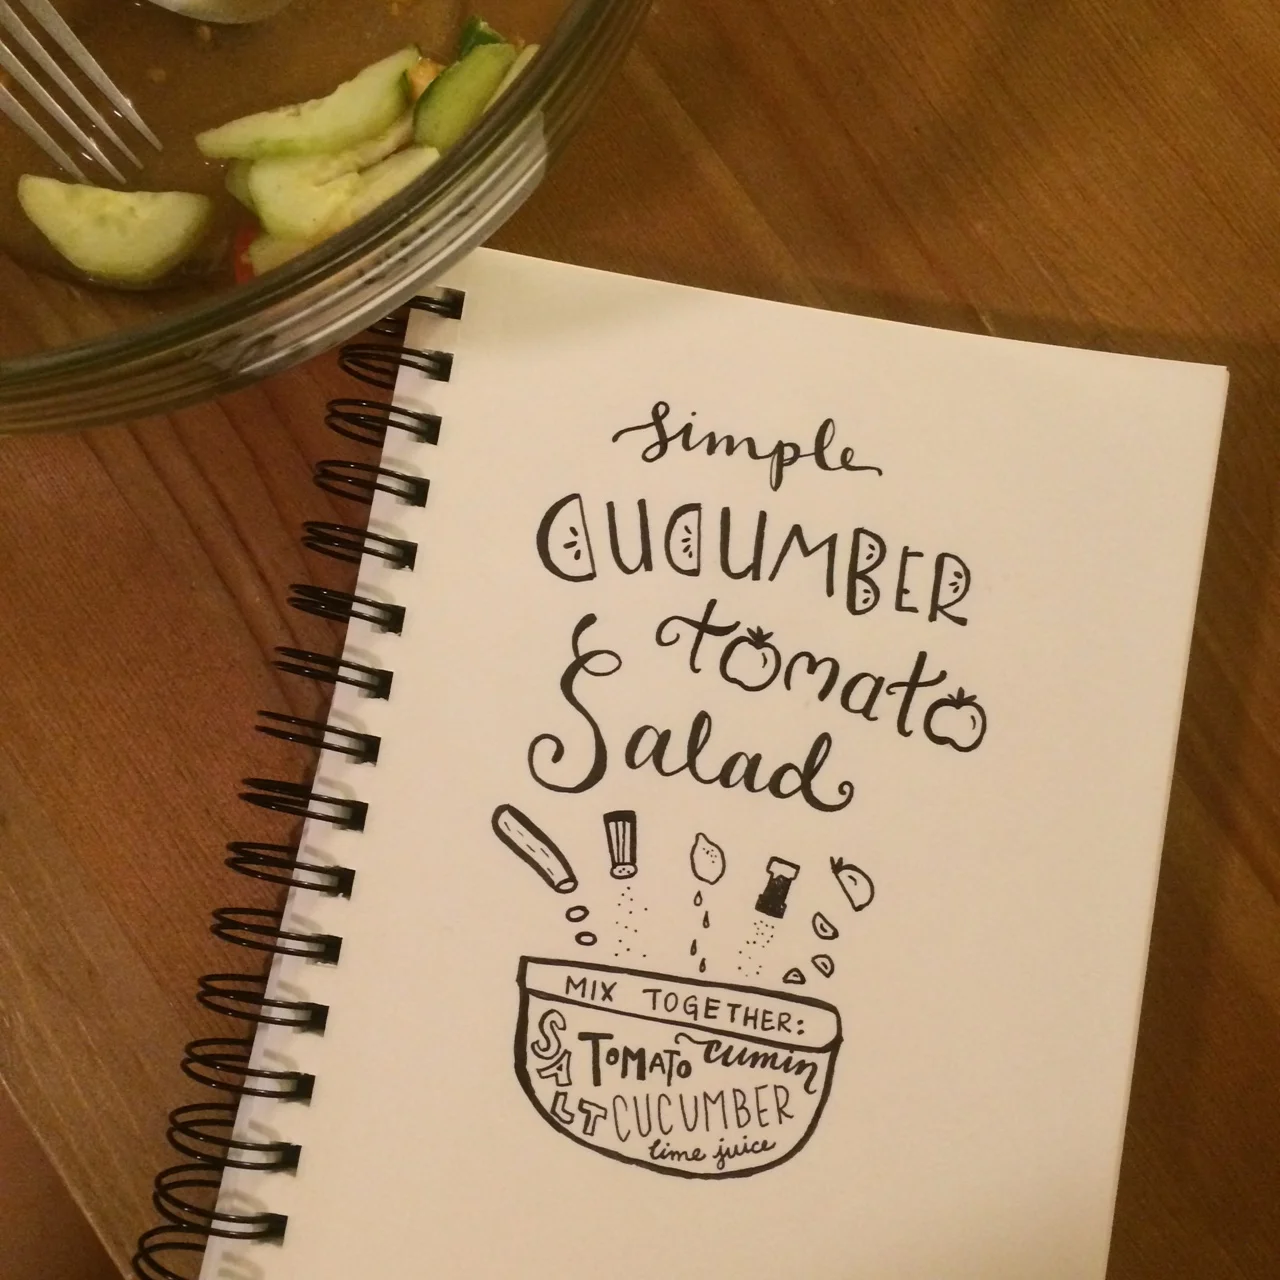 simple
CUCUMBER
tomato
Salad
MIX TOGETHER:
SALT
TOMATO cumin
CUCUMBER
lime juice